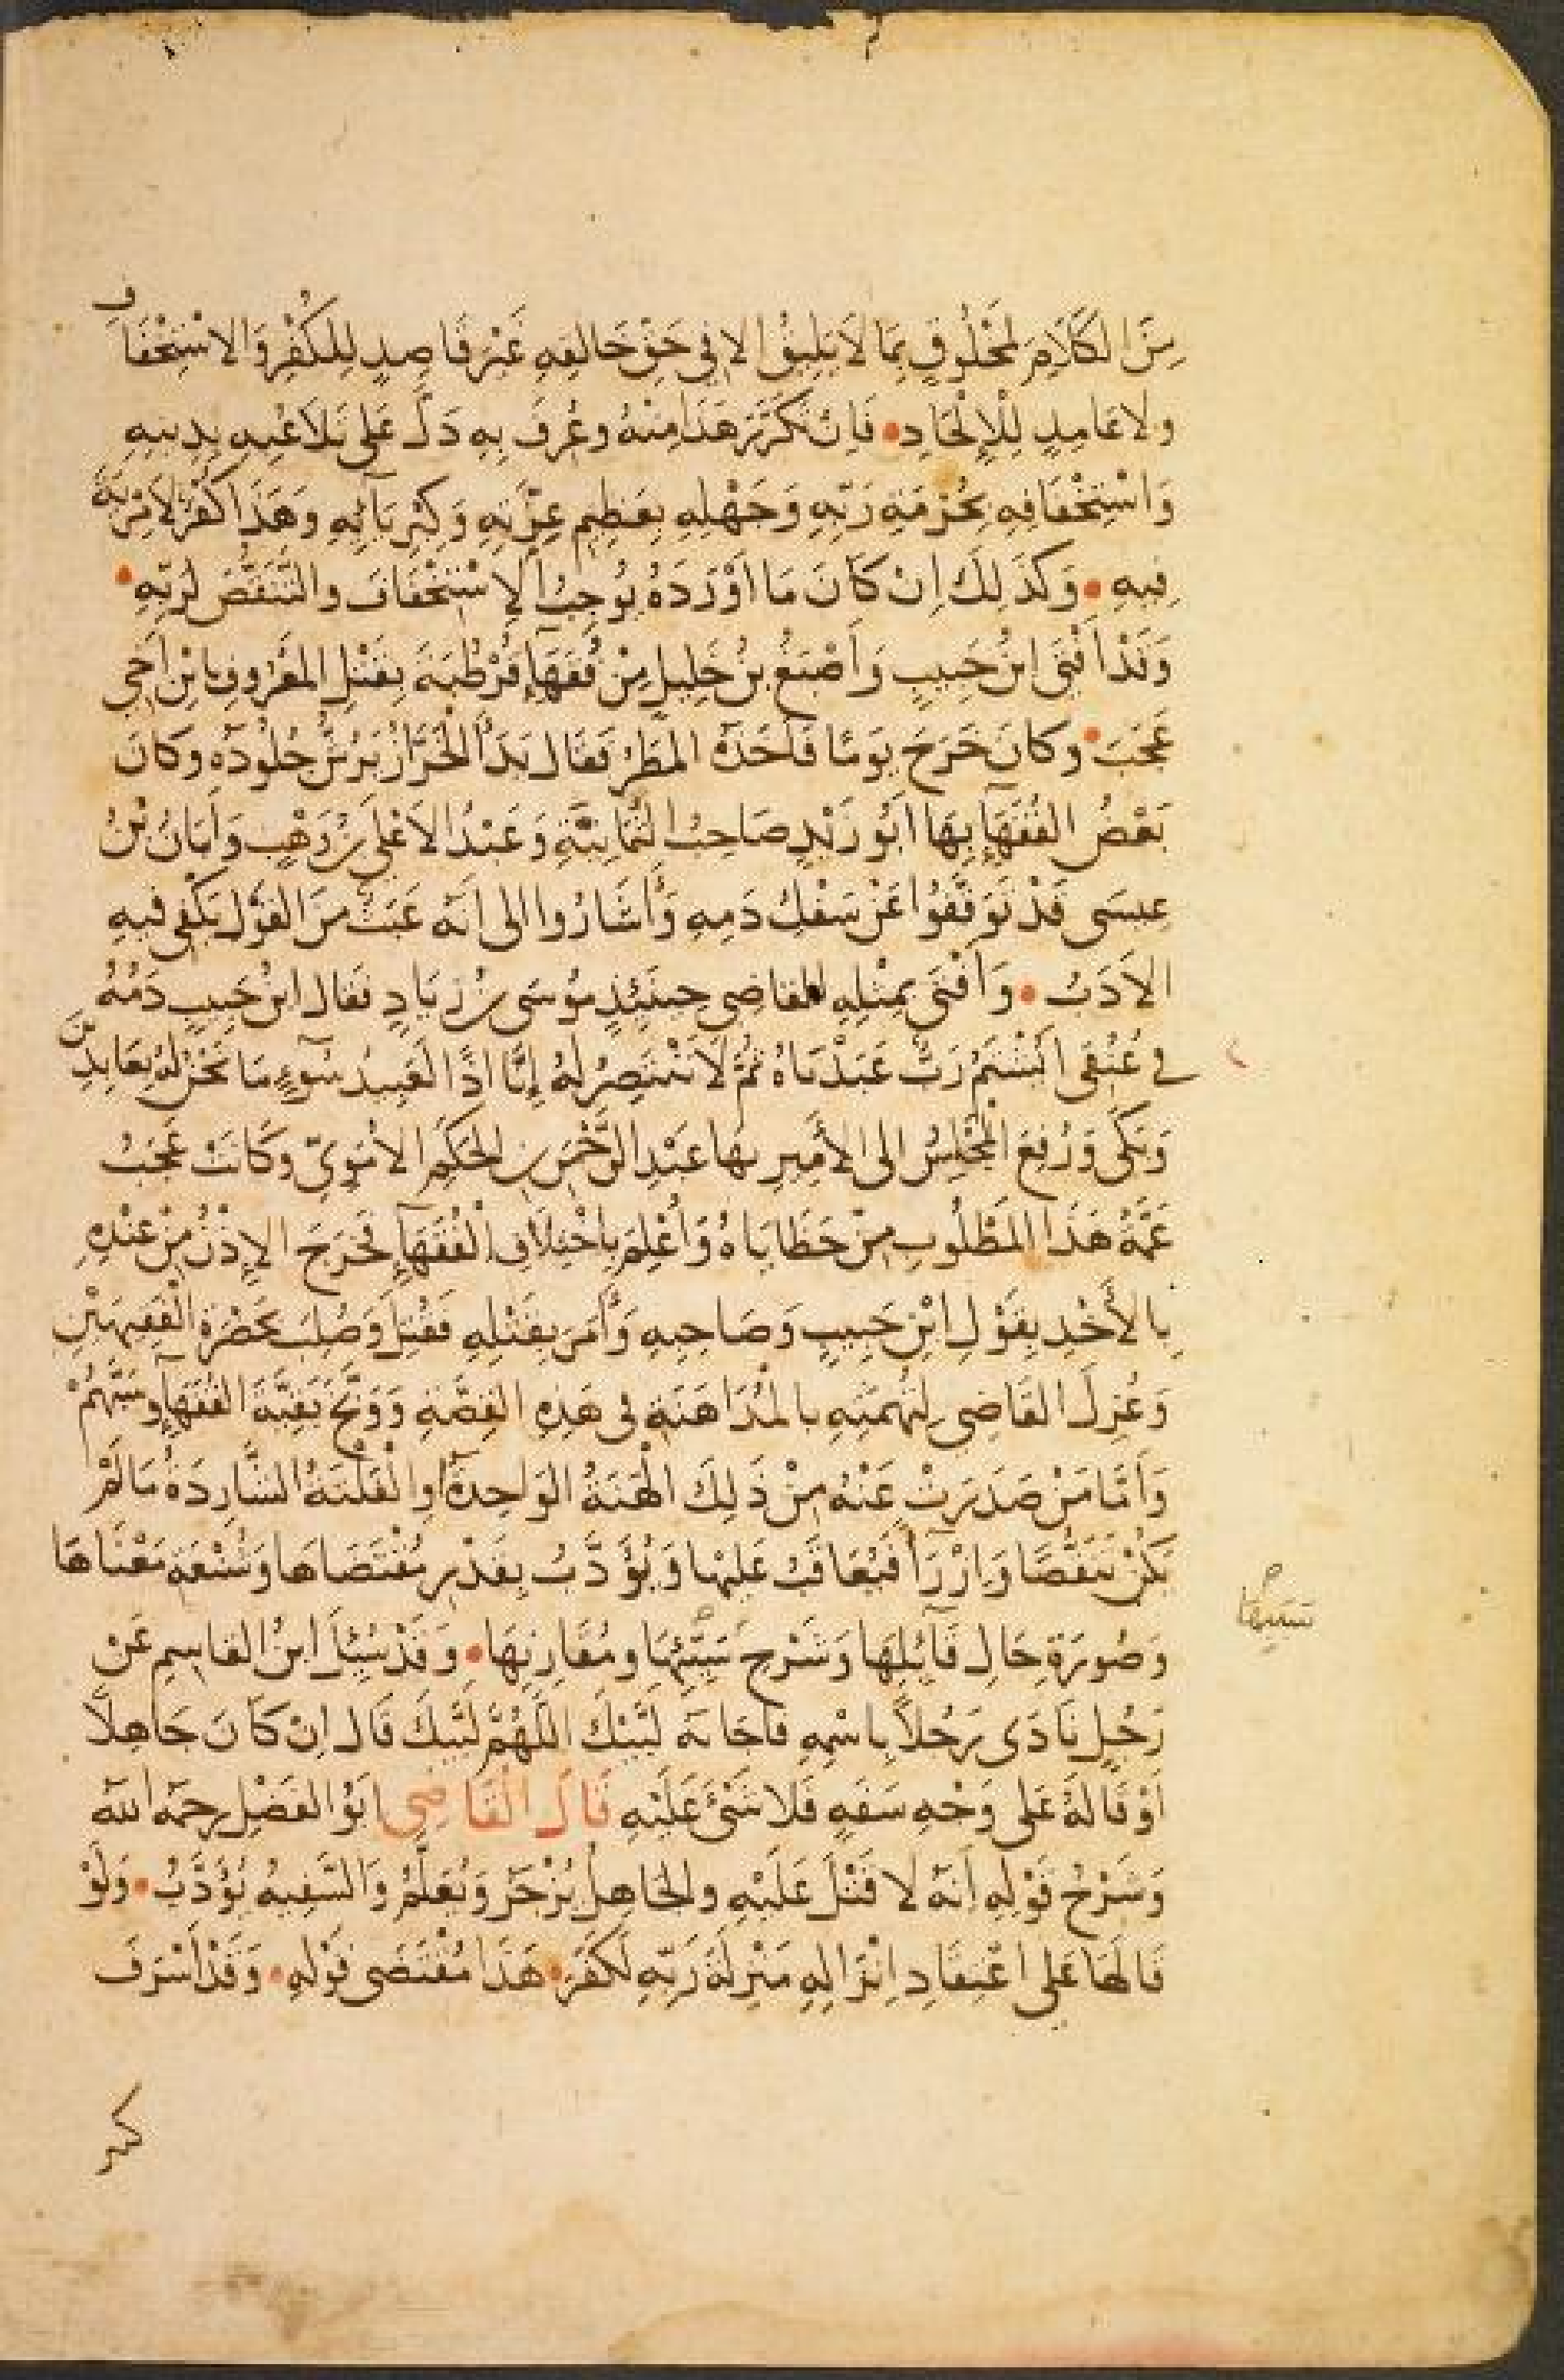 مِنَ الكَلَامِ لمَخْلُوقٍ بِمَا لَا يَلِيقُ إلا فِي حَقِّ خَالِقِهِ غَيْرَ قَاصِدٍ لِلكُفْرِ وَالاسْتِخْفَافِ
ولا عَامِدٍ لِلْإِلْحَادِ • فَإِنْ تَكَرَّرَ هَذَا مِنْهُ وعُرِفَ بِهِ دَلَّ عَلى تَلَاعُبِهِ بِدِينِهِ
وَاسْتِخْفَافِهِ بِحُرْمَةِ رَبِّهِ وَجَهْلِهِ بِعَظِيمِ عِزَّتِهِ وَكِبْرِيَآئِهِ وَهَذَا كُفْرٌ لَا مِرْيَةَ
فِيهِ • وَكَذَلِكَ إنْ كَانَ مَا أَوْرَدَهُ يُوجِبُ الاِسْتِخْفَافَ والتَّنَقُّصَ لرَبِّهِ •
وَقَدْ أَفْتَى ابْنُ حَبِيبٍ وَأَصْبَغُ بنُ خَلِيلٍ مِنْ فُقَهَآءِ قُرْطُبَةَ بِقَتْلِ المَعْرُوفِ بابْنِ أَخِي
عَجَبَ • وكَانَ خَرَجَ يَومًا فأخَذَهُ المَطَرُ فقَال بَدَأ الخَرَّازُ يَرُشُّ جُلُودَه وكَانَ
بَعْضُ الفُقَهَآءِ بِهَا أَبُو زَيْدٍ صَاحِبُ الثُّمَانِيَّةِ وَعَبْدُ الأَعْلَى بْنُ وَهْبٍ وَأبَانُ بْنُ
عِيسَى قَدْ تَوَقَّفُوا عَنْ سَفْكِ دَمِهِ وَأَشَارُوا الى أَنَّهُ عَبَثٌ مِنَ القَوْلِ يَكْفِي فِيهِ
الأَدَبُ • وَأَفْتَى بِمِثْلِهِ القاضِي حِينَئِذٍ مُوسَى بْنُ زِيَادٍ فقَال ابنُ حَبِيبٍ دَمُهُ
في عُنُقِي أَيُشْتَمُ رَبٌّ عَبَدْنَاهُ ثُمَّ لَا نَنْتَصِرُ لَهُ إِنَّا إِذًا لَعَبِيدُ سُوءٍ مَا نَحْنُ لَهُ بِعَابِدِينَ
وَبَكَى وَرُفِعَ المَجْلِسُ الى الأَمِيرِ بهَا عَبْدِ الرَّحْمَنِ بنِ الحَكَمِ الأُمَوِيّ وَكَانَتْ عَجَبُ
عَمَّةُ هَذَا المَطْلُوبِ مِنْ حَظَايَاهُ وَأُعْلِمَ بِاخْتِلَافِ الْفُقَهَآءِ فخَرَجَ الإِذْنُ مِنْ عِنْدِهِ
بِالأَخْذِ بِقَوْلِ ابْنِ حَبِيبٍ وَصَاحِبِهِ وَأَمَرَ بِقَتْلِهِ فَقُتِلَ وَصُلِبَ بحَضْرَةِ الْفَقِيهَيْنِ
وَعُزِلَ القَاضِي لِتُهْمَتِهِ بالمُدَاهَنَةِ في هَذِهِ القِصَّةِ وَوَبَّخَ بَقِيَّةَ الفُقَهَآءِ وسَبَّهُمْ
وَأمَّا مَنْ صَدَرَتْ عَنْهُ مِنْ ذَلِكَ الْهَنَةُ الوَاحِدَةُ أوِ الْفَلْتَةُ الشَّارِدَةُ مَالَمْ
يَكُنْ تَنَقُّصًا وَإِزْرَآءً فَيُعَاقَبُ عَلَيْها وَيُؤَدَّبُ بِقَدْرِ مُقْتَضَاهَا وَشُنْعَةِ مَعْنَاهَا
وَصُورَةِ حَالِ قَآئِلِهَا وَشَرْحِ سَبَبِهَا ومُقَارِنِهَا • وَقَدْ سُئِلَ ابنُ القاسِمِ عَنْ
رَجُلٍ نَادَى رَجُلاً بِاسْمِهِ فأجَابَهُ لَبَّيْكَ اللَّهُمَّ لَبَّيْكَ قَال إنْ كَانَ جَاهِلاً
أوْ قَالَهُ عَلَى وَجْهِ سَفَهٍ فَلَا شَيْءَ عَلَيْهِ قَالَ الْقَاضِي أبُو الفَضْلِ رحمه الله
وَشَرْحُ قَوْلِهِ أَنَّهُ لَا قَتْلَ عَلَيْهِ والجَاهِلُ يُزْجَرُ وَيُعَلَّمُ وَالسَّفِيهُ يُؤَدَّبُ • وَلَوْ
قَالَهَا عَلَى اعْتِقَادِ إِنْزَالِهِ مَنْزِلَةَ رَبِّهِ لَكَفَرَ • هَذَا مُقْتَضَى قَوْلِهِ • وَقَدْ أَسْرَفَ
سببها
كثير